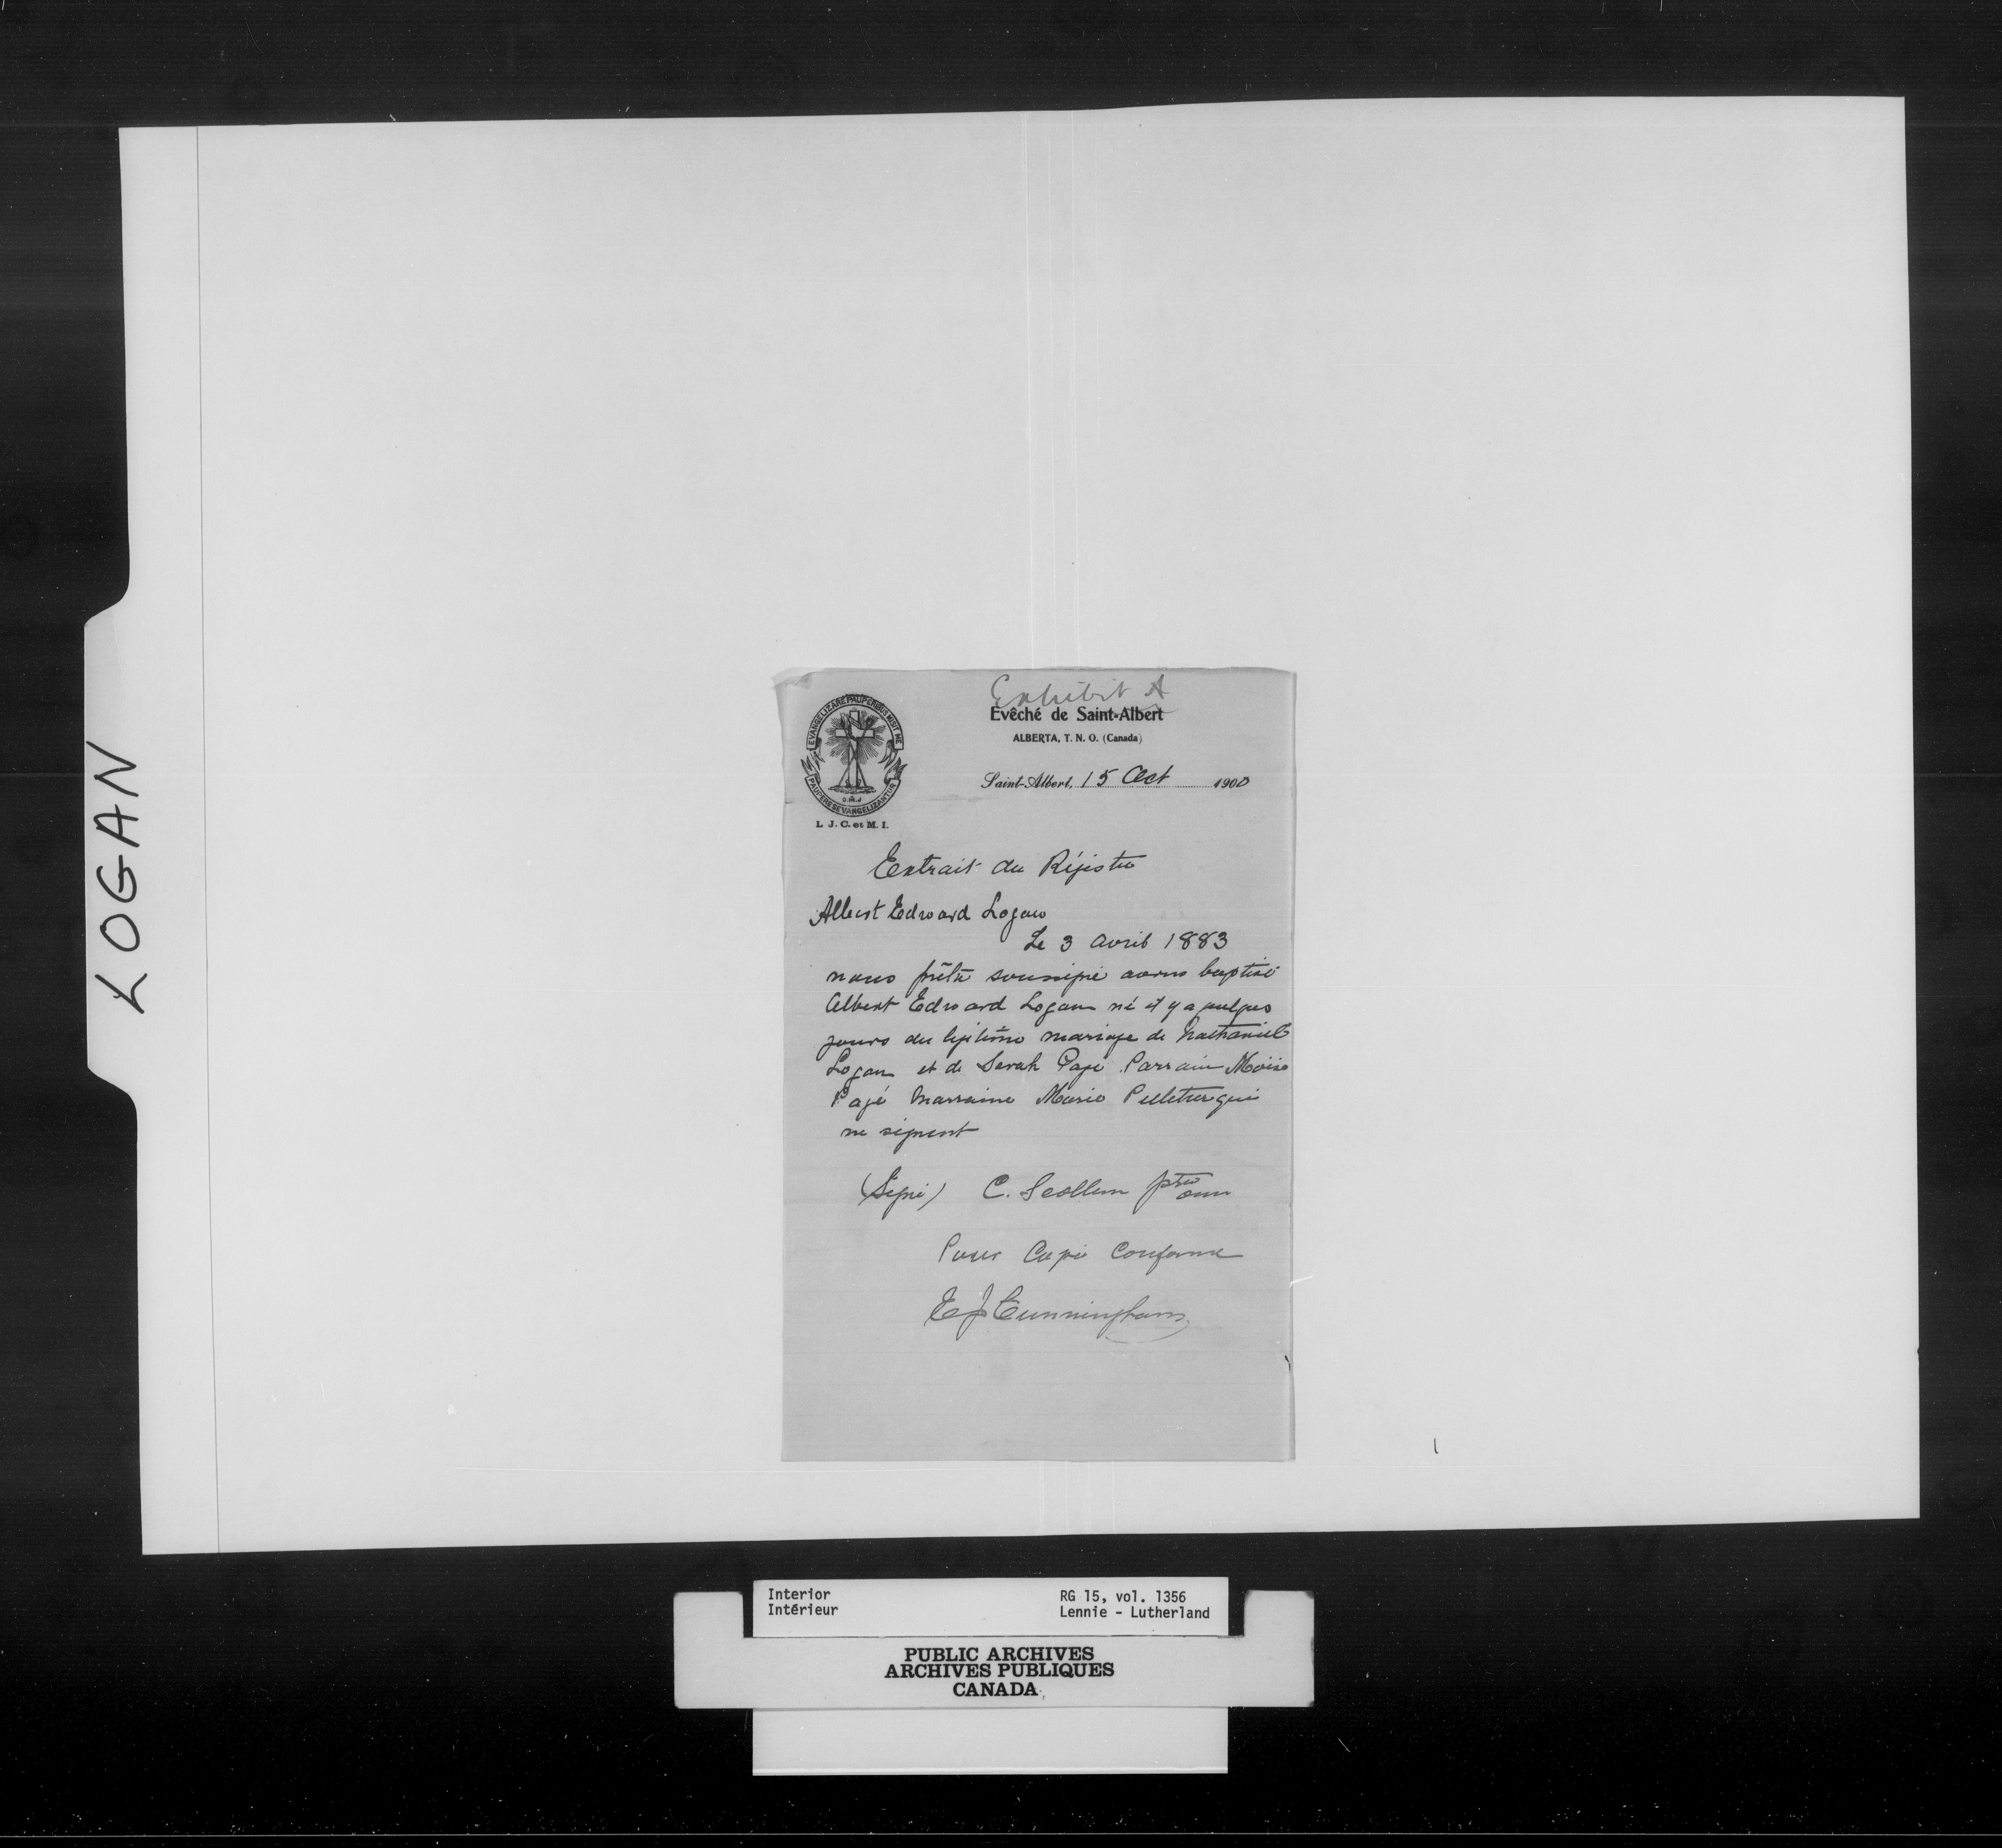 LOGAN
Exhibit A
Evêché de Saint-Albert
ALBERTA, T. N. O. (Canada)
EVANGELIZARE PAUPERIBUS MISIT ME
PAUPERES EVANGELIZANTUR
O.M.J
L. J. C. et M. I.
Saint-Albert, 15 Oct 1900
Extrait du Régistre
Albert Edward Logan
Le 3 Avril 1883
nous prêtre soussigné avons baptisé
Albert Edward Logan né il y a quelques
jours du légitime mariage de Nathaniel
Logan et de Sarah Pagé Parrain Moïse
Pagé Marraine Marie Pelletier qui
ne signent
(Signé) C. Scollen ptre omi
Pour Copie Conforme
E J Cunningham
Interior
Intérieur
RG 15, vol. 1356
Lennie - Lutherland
PUBLIC ARCHIVES
ARCHIVES PUBLIQUES
CANADA